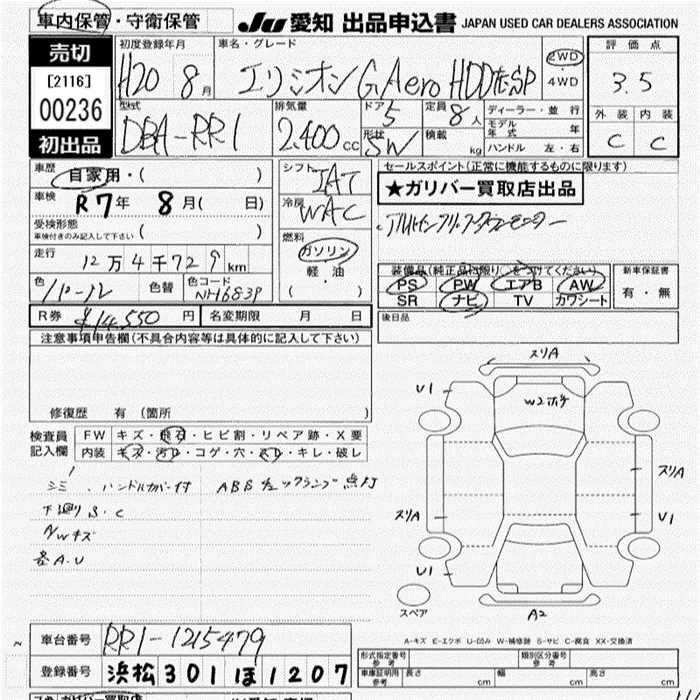 車内保管・守衛保管 JU 愛知 出品申込書 JAPAN USED CAR DEALERS ASSOCIATION
売切
[2116]
00236
初出品
初度登録年月 車名・グレード 2WD 評価点
H20 8月 エリシオン G Aero HDD 4WD 3.5
型式 排気量 ドア 定員 ディーラー・並行 外装 内装
DBA-RR1 2.400cc 5 8人 モデル年式 年 C C
形状 SW 積載 kg ハンドル 左・右
車歴 自家用・( ) シフト IAT セールスポイント(正常に機能するものに限ります)
車検 R7年 8月( 日) 冷房 WAC ★ガリバー買取店出品
受検形態
車検付きのみ記入して下さい ( ) 燃料 ガソリン
走行 12万4千729km 軽油
装備品(純正品に限り○をつけてください) 新車保証書
色 パール 色替 色コード NH683P ( ) PS PW エアB AW 有・無
SR ナビ TV カワシート
R券 ¥14,550円 名変期限 月 日 後日品
注意事項申告欄(不具合内容等は具体的に記入して下さい)
修復歴 有 (箇所 )
検査員 FW キズ・飛石・ヒビ割・リペア跡・X要
記入欄 内装 キズ・汚レ・コゲ・穴・スレ・キレ・破レ
シミ、ハンドルカバー付 ABSチェックランプ点灯
下廻りS・C
NWキズ
各A.U
スリA
U1
W2ホチ
スリA
スリA
U1
U1
スペア
A2
A-キズ E-エクボ U-凹み W-補修跡 S-サビ C-腐食 XX-交換済
車台番号 RR1-1215479
登録番号 浜松301ほ1207
形式指定番号 参考 類別区分番号 参考
車庫証明用 参考 長さ cm 幅 cm 高さ cm